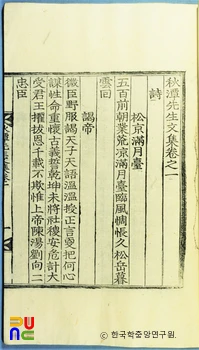 秋潭先生文集卷之一
詩
松京滿月臺
五百前朝業荒凉滿月臺臨風惆帳久松岳暮
雲回
謁帝
微臣野服謁天子天語溫溫授正言更把何心
謀性命重懷古義誓乾坤未將社稷安危計大
受君王擢拔恩千載不欺惟上帝陳湯劉向二
忠臣
PUNC
© 한국학중앙연구원